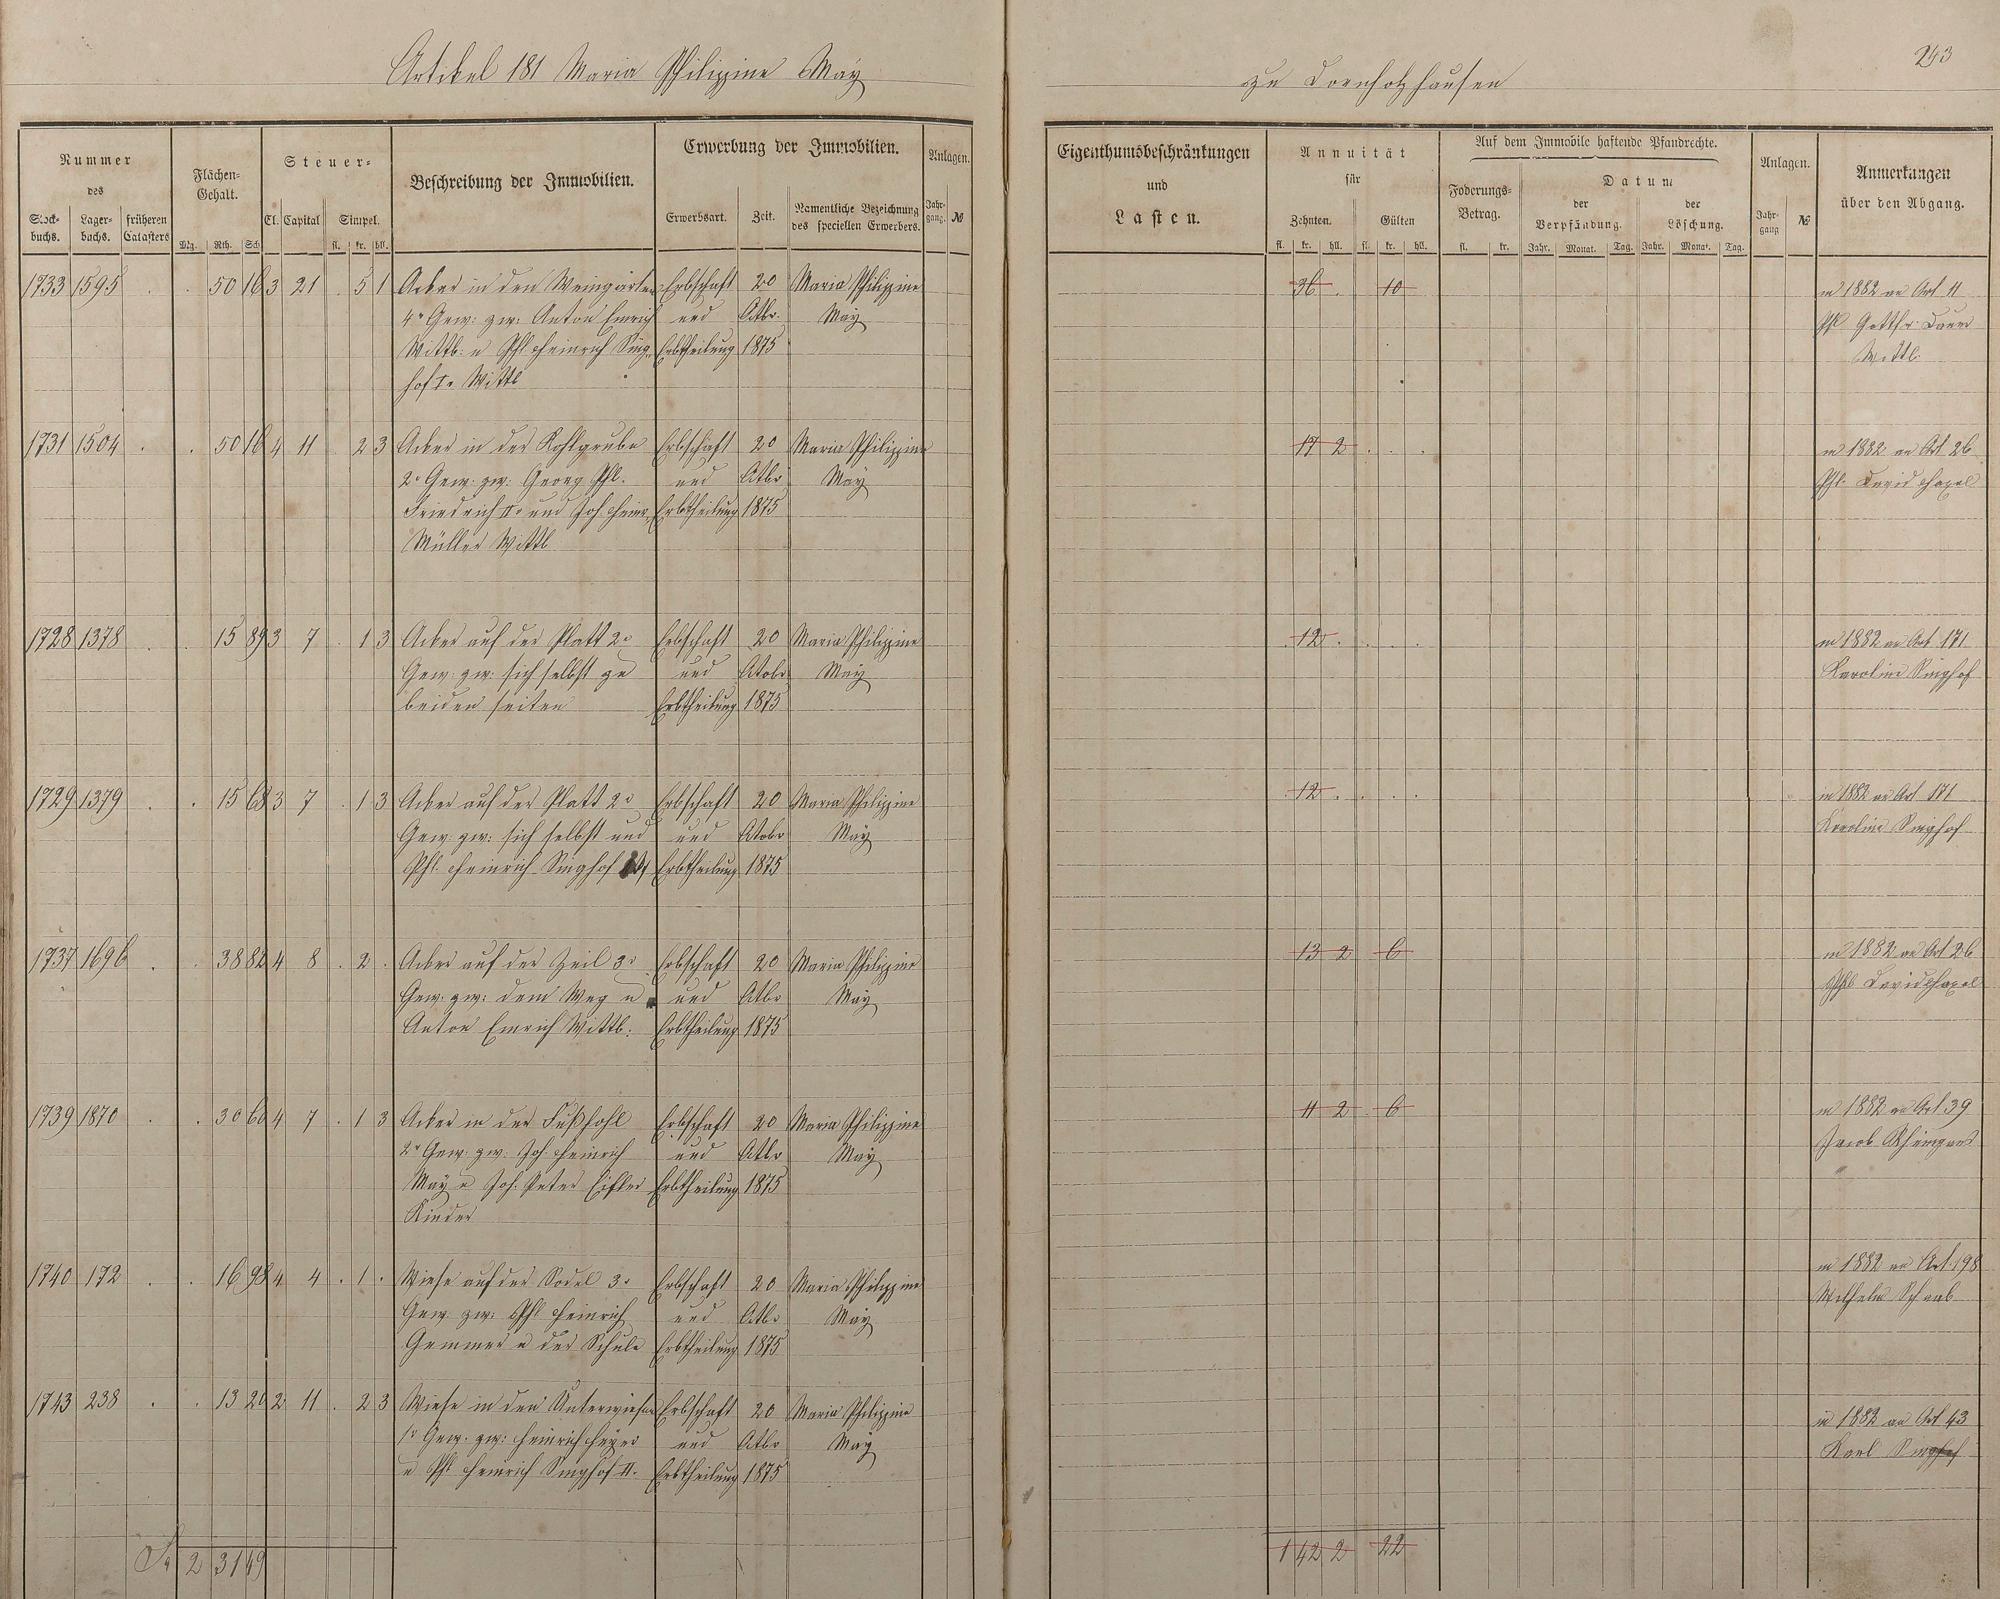 Artikel 181 Maria Philippine May
zu Dornholzhausen
243
Nummer
des
Stock-
buchs.
Lager-
buchs.
früheren
Catasters
Flächen-
Gehalt.
Mg. Rth. Sch.
Steuer-
Cl. Capital Simpel.
fl. kr. hll.
Beschreibung der Immobilien.
Erwerbung der Immobilien.
Erwerbsart. Zeit.
Namentliche Bezeichnung
des speciellen Erwerbers.
Anlagen.
Jahr-
gang. №
Eigenthumsbeschränkungen
und
Lasten.
Annuität
für
Zehnten. Gülten
fl. kr. hll. fl. kr. hll.
Auf dem Immobile haftende Pfandrechte.
Foderungs-
Betrag.
fl. kr.
Datum
der
Verpfändung.
der
Löschung.
Jahr. Monat. Tag. Jahr. Monat. Tag.
Anlagen.
Jahr-
gang №
Anmerkungen
über den Abgang.
1733 1595 . . 50 16 3 21 . 5 1 Acker in den Weingärten Erbschaft 20 Maria Philippine 36 . 10 in 1882 an Art 11
4r Gew: zw: Anton Emrich und Otbr. May
Wittb: u Phl Heinrich Sing- Erbtheilung 1875 Wittb.
hof I. Wittb
1731 1504 . . 50 16 4 11 . 2 3 Acker in der Kohlgrube Erbschaft 20 Maria Philippine 17 2 . . . in 1882 an Art 26
2r Gew: zw: Georg Phl. und Otbr May Phl. David Hagel
Friedrich II. und Joh. Heinr. Erbtheilung 1875
Müller Wittb
1728 1378 . . 15 89 3 7 . 1 3 Acker auf der Platt 2r Erbschaft 20 Maria Philippine . 12 . . . . in 1882 an Art 171
Gew: zw: sich selbst zu und Otobr May Karoline Singhof
beiden seiten Erbtheilung 1875
1729 1379 . . 15 68 3 7 . 1 3 Acker auf der Platt 2r Erbschaft 20 Maria Philippine . 12 . . . . in 1882 an Art 171
Gew. zw: sich selbst und und Otobr May Karoline Singhof
Phl. Heinrich Singhof Erbtheilung 1875
1737 1696 . . 38 82 4 8 . 2 . Acker auf der Zeil 3r Erbschaft 20 Maria Philippine 13 2 6 in 1882 an Art 26
Gew. zw: dem Weg u und Otbr May Phl David Hagel
Anton Emrich Wittb: Erbtheilung 1875
1739 1870 . . 30 60 4 7 . 1 3 Acker in der Fußhohl Erbschaft 20 Maria Philippine 11 2 . 6 in 1882 an Art 39
2r Gew: zw: Joh. Heinrich und Otbr May Jacob
May u Joh. Peter Eisler Erbtheilung 1875
Kinder
1740 172 . . 16 98 4 4 . 1 . Wiese auf der Sodel 3r Erbschaft 20 Maria Philippine in 1882 an Art. 198
Gew. zw: Phl Heinrich und Otbr May Wilhelm Schaab
Gemmer u der Schule Erbtheilung 1875
1743 238 . . 13 20 2 11 . 2 3 Wiese in den Unterwiesen Erbschaft 20 Maria Philippine in 1882 an Art 43
1r Gew. zw: Heinrich Heyer und Otbr May Karl Singhof
u Phl Heinrich Singhof II. Erbtheilung 1875
Sa 2 31 49 1 42 2 22